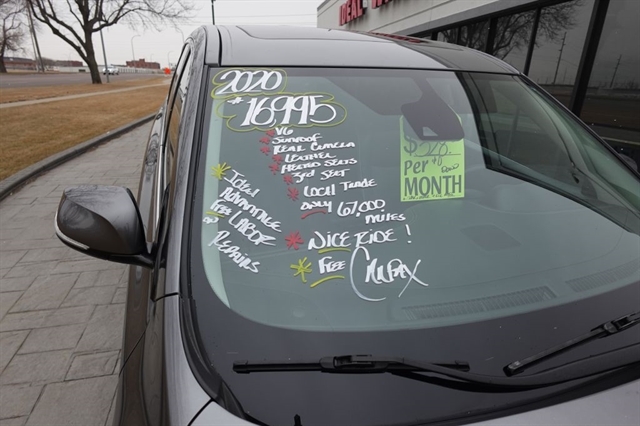 2020
$16995
V6
Sunroof
Rear Camera
Leather
Heated Seats
3rd Seat
Local Trade
Only 67,000
miles
Nice Ride!
Free Carfax
Total
Advantage
Free Labor
on
Repairs
Per
MONTH